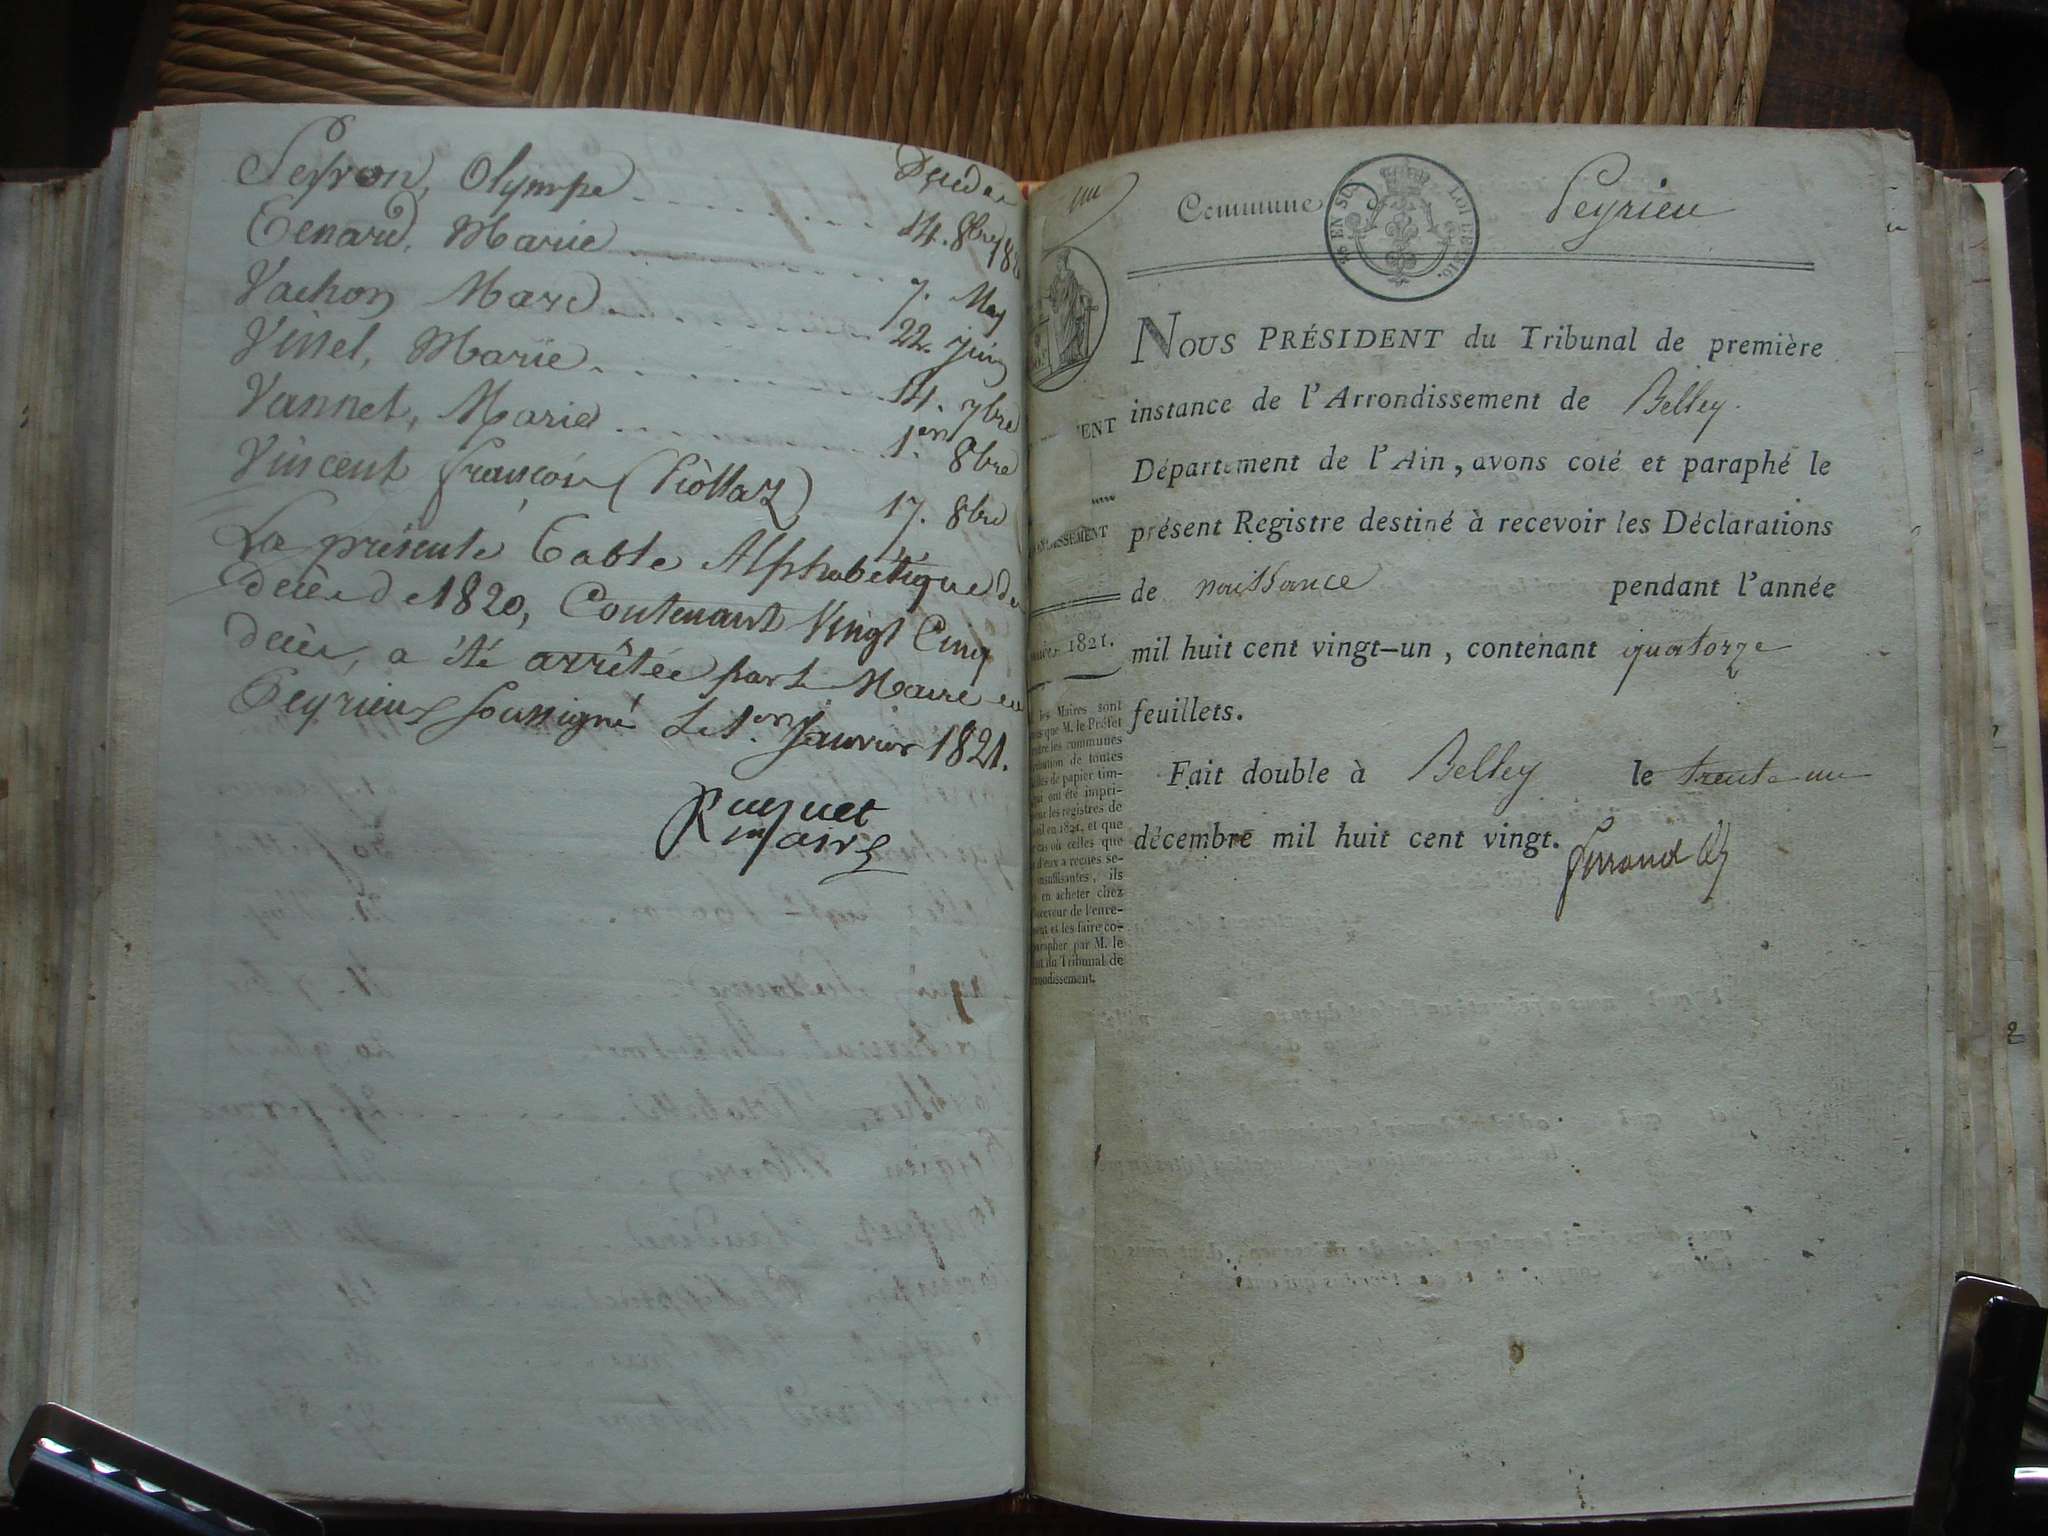 Peyron, Olympe
Tenard, Marie 14. 8bre 18
Vachon Marc 7. May
Vissel, Marie 22. juin
Vannet, Marie 14. 7bre
1er. 8bre
Vincent françois (Piollaz) 17. 8bre
La présente Table Alphabétique de
décès de 1820, Contenant Vingt Cinq
décès, a été arrêtée par le Maire de
Peyrieu soussigné Le 1er. Janvier 1821.
Ruguet
maire
un
Commune Peyrieu
EN SUS LOI DE 1816.
NOUS PRÉSIDENT du Tribunal de première
instance de l'Arrondissement de Belley.
Département de l'Ain, avons coté et paraphé le
présent Registre destiné à recevoir les Déclarations
de naissance pendant l'année
mil huit cent vingt-un, contenant quatorze
feuillets.
Fait double à Belley le trente un
décembre mil huit cent vingt.
Ferrand
ENT
ISSEMENT
1821.
les Maires sont
que M. le Préfet
les communes
de toutes
de papier tim-
ont été impri-
les registres de
en 1821, et que
cas où celles que
d'eux a reçues se-
insuffisantes, ils
en acheter chez
Receveur de l'enre-
et les faire co-
parapher par M. le
du Tribunal de
rrondissement.
2